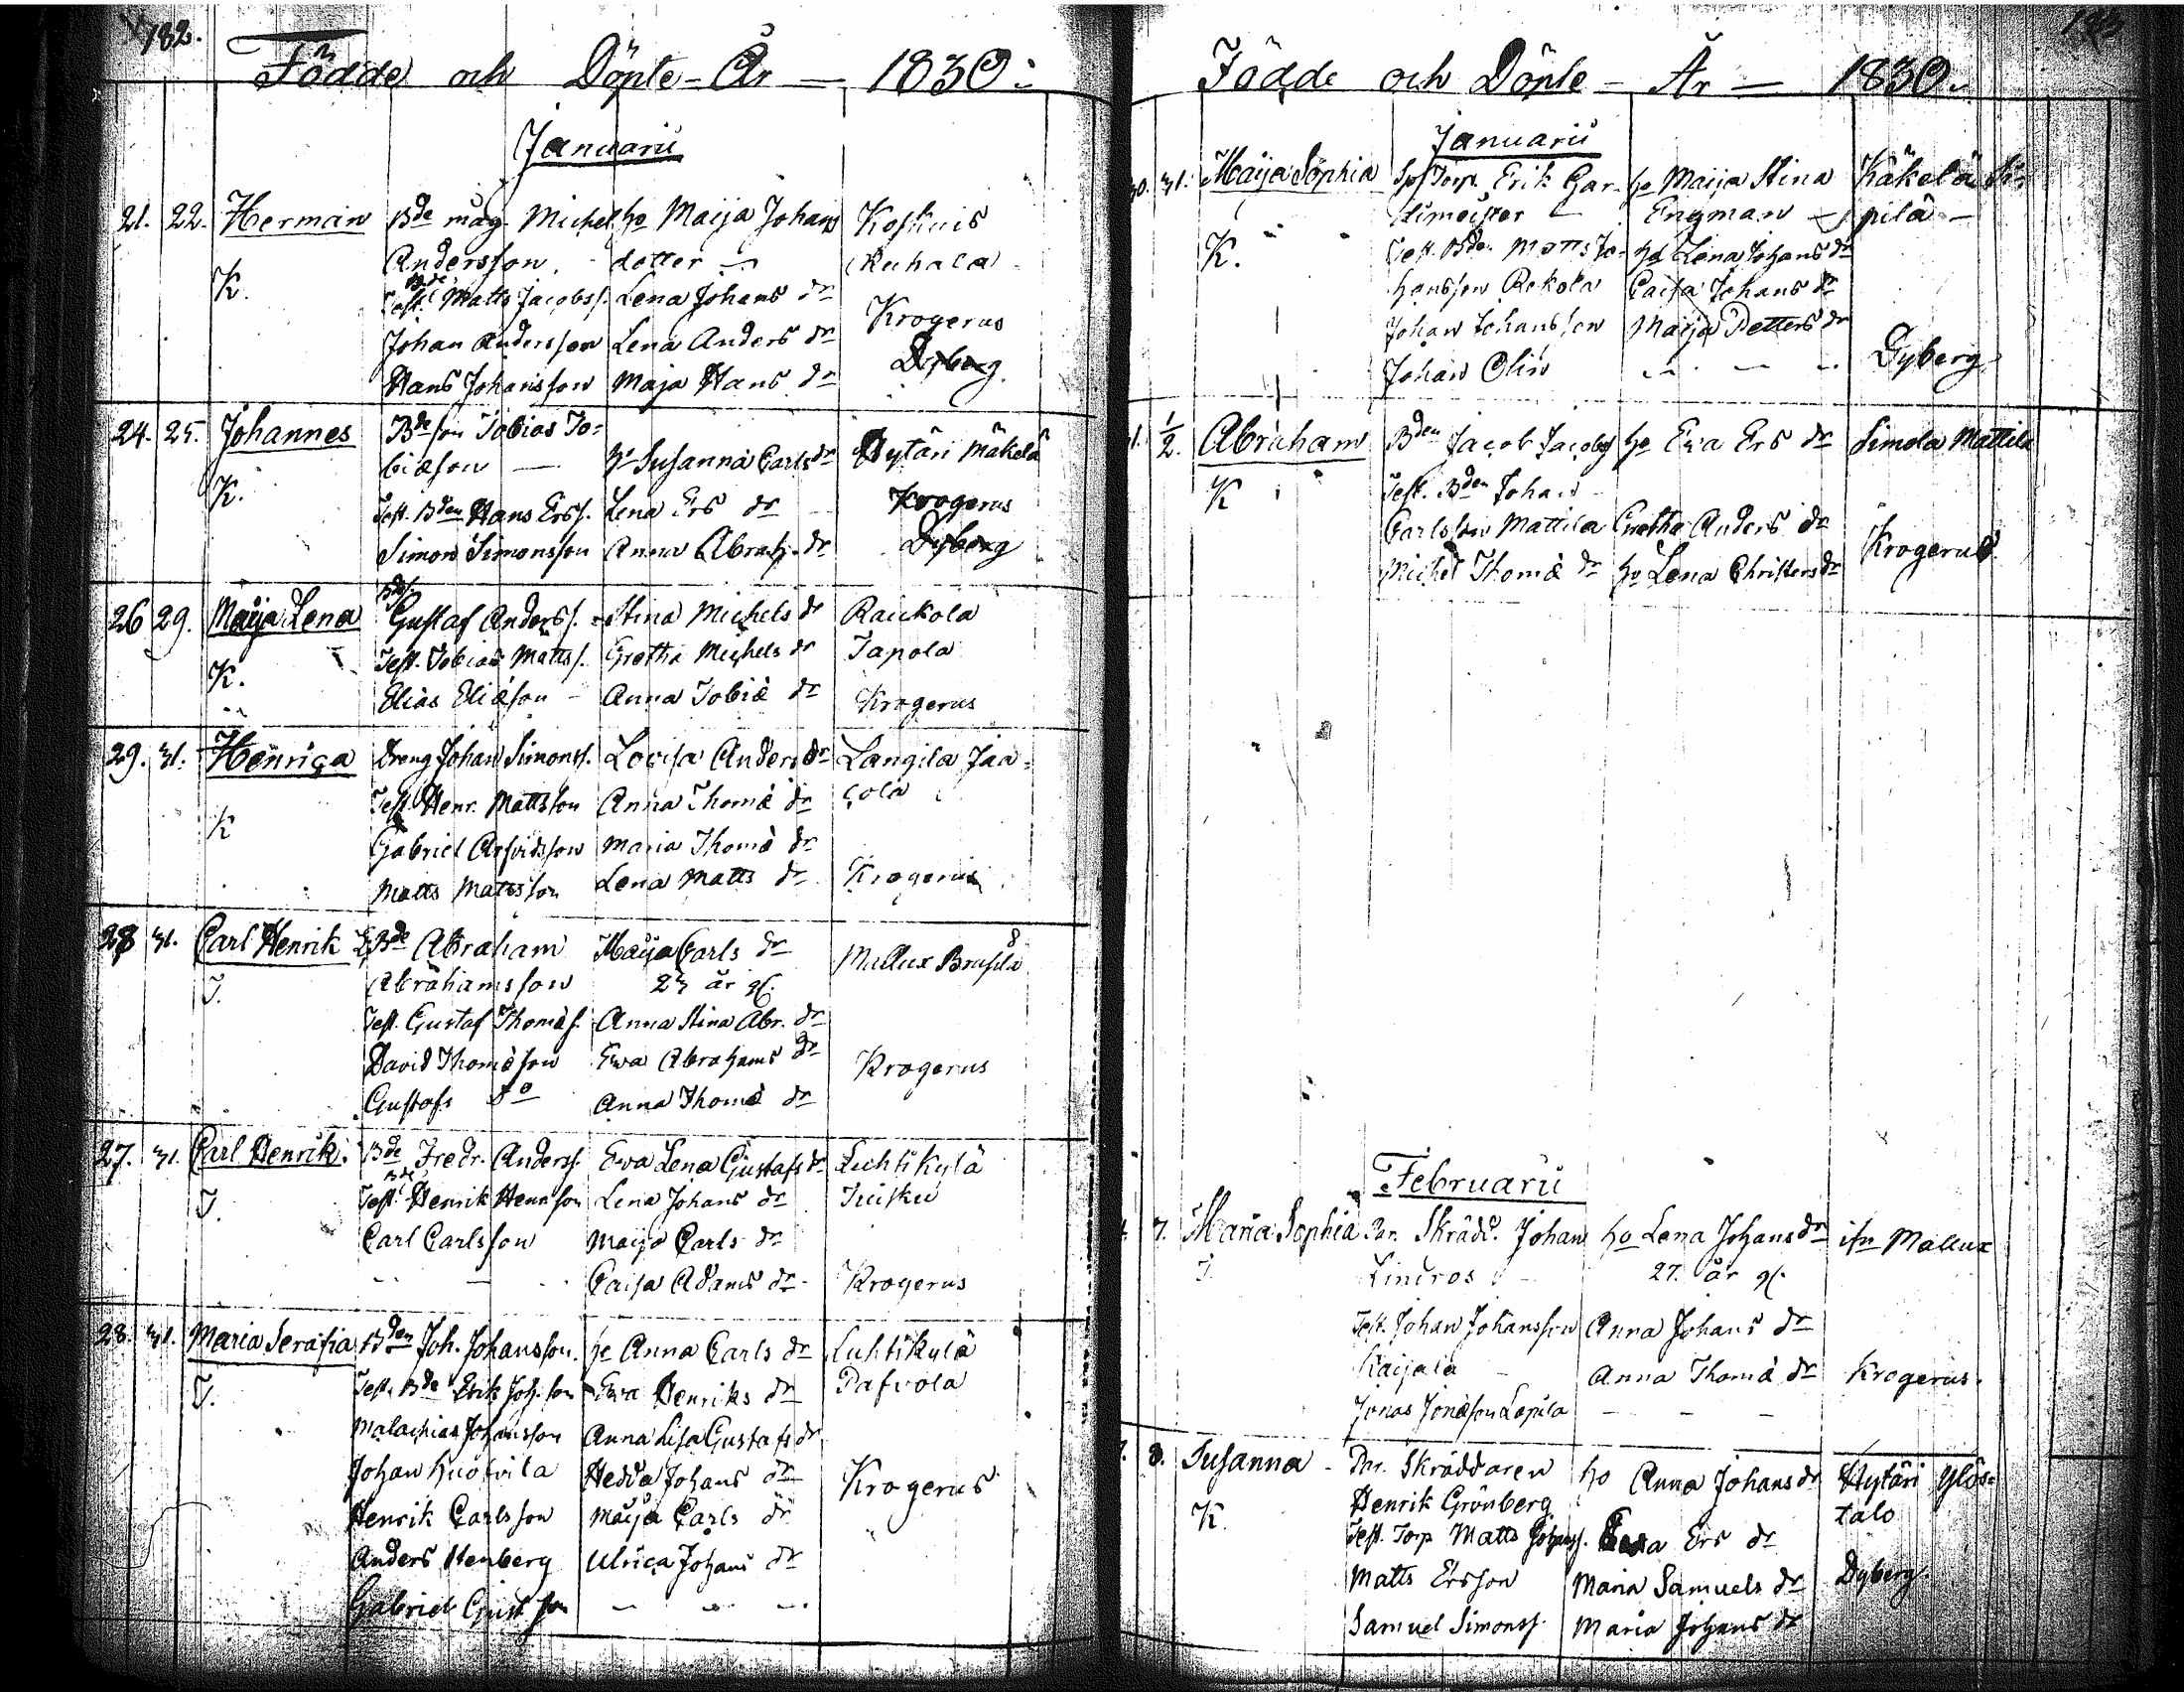 182.
Födde och Döpte - År — 1830.
Januarii
21. 22. Herman Bde mag. Michel ho Maija Johans Koskuis
Andersson, dotter (Kuhala)
K. Bde
Test. Matts Jacobss. Lena Johans dr
Johan Andersson Lena Anders dr Krogerus
Hans Johansson Maja Hans dr Dyberg
24. 25. Johannes Bde son Tobias To-
biæson — ho Susanna Carls dr Hytäri Mäkelä
K. Test. Bden Hans Erss. Lena Ers dr Krogerus
Simon Simonsson Anna Abrah. dr Dyberg
26 29. Maija Lena Gustaf Anderss. Stina Michels dr Raukola
Test. Tobias Mattss. Gretha Michels dr Tapola
K. Elias Eliæson - Anna Tobiæ dr Krogerus
29. 31. Henrica Dreng Johan Simonss. Lovisa Anders dr Langila Jaa-
Test. Henr. Mattsson Anna Thomæ dr cola
K Gabriel Arfvidsson Maria Thomæ dr
Matts Mattsson Lena Matts dr Krogerus
28 31. Carl Henrik Bde Abraham Maija Carls dr Mallux
Abrahamsson 23 år gl.
T. Test. Gustaf Thomæs. Anna Stina Abr. dr
David Thomæson Ewa Abrahams dr Krogerus
Gustafs do Anna Thomæ dr
27. 31. Carl Henrik. Bde Fredr. Anderss. Ewa Lena Gustafs dr Luhtikylä
T. Test. Bde Henrik Henrsson Lena Johans dr Tuisku
Carl Carlsson Maija Carls dr
- — - Caisa Adams dr - Krogerus
28. 31. Maria Serafia Bden Joh. Johansson. ho Anna Carls dr Luhtikylä
T. Test. Bde Erik Joh. son Ewa Henriks dr Pafvola
Malachias Johansson Anna Lisa Gustafs dr
Johan Hedda Johans dr Krogerus
Henrik Carlsson Maija Carls dr
Anders Stenberg Ulrica Johans dr
Gabriel Gust son — — —
183
Födde och Döpte - År — 1830.
Januarii
30. 31. Maija Sophia Torp. Erik Gar- ho Maija Stina Käkelä
Engman —
K. Test. Bde. Matts Jo- ho Lena Johans dr
hansson Rekola Caisa Johans dr
Johan Johansson Maija Petters dr
Johan Olin - — - Dyberg
31. 1/2. Abraham Bden Jacob Jacobss ho Eva Ers dr Simola Mattila
K Test. Bden Johan
Carlsson Mattila Gretha Anders dr
Michel Thomæ dr ho Lena Christers dr Krogerus
Februarii
7. Maria Sophia Skrädd. Johan ho Lena Johans dr ifrn Mallux
T. Lindros 27. år gl.
Test. Johan Johansson Anna Johans dr
Kaijala - Anna Thomæ dr Krogerus.
Jonas Jonæson Lapila — — —
8. Susanna - Skräddaren ho Anna Johans dr Hytäri Ylös-
Henrik Grönberg talo
K. Test. Torp Matts Johanss. Ers dr
Matts Ersson Maria Samuels dr Dyberg.
Samuel Simonss. Maria Johans dr